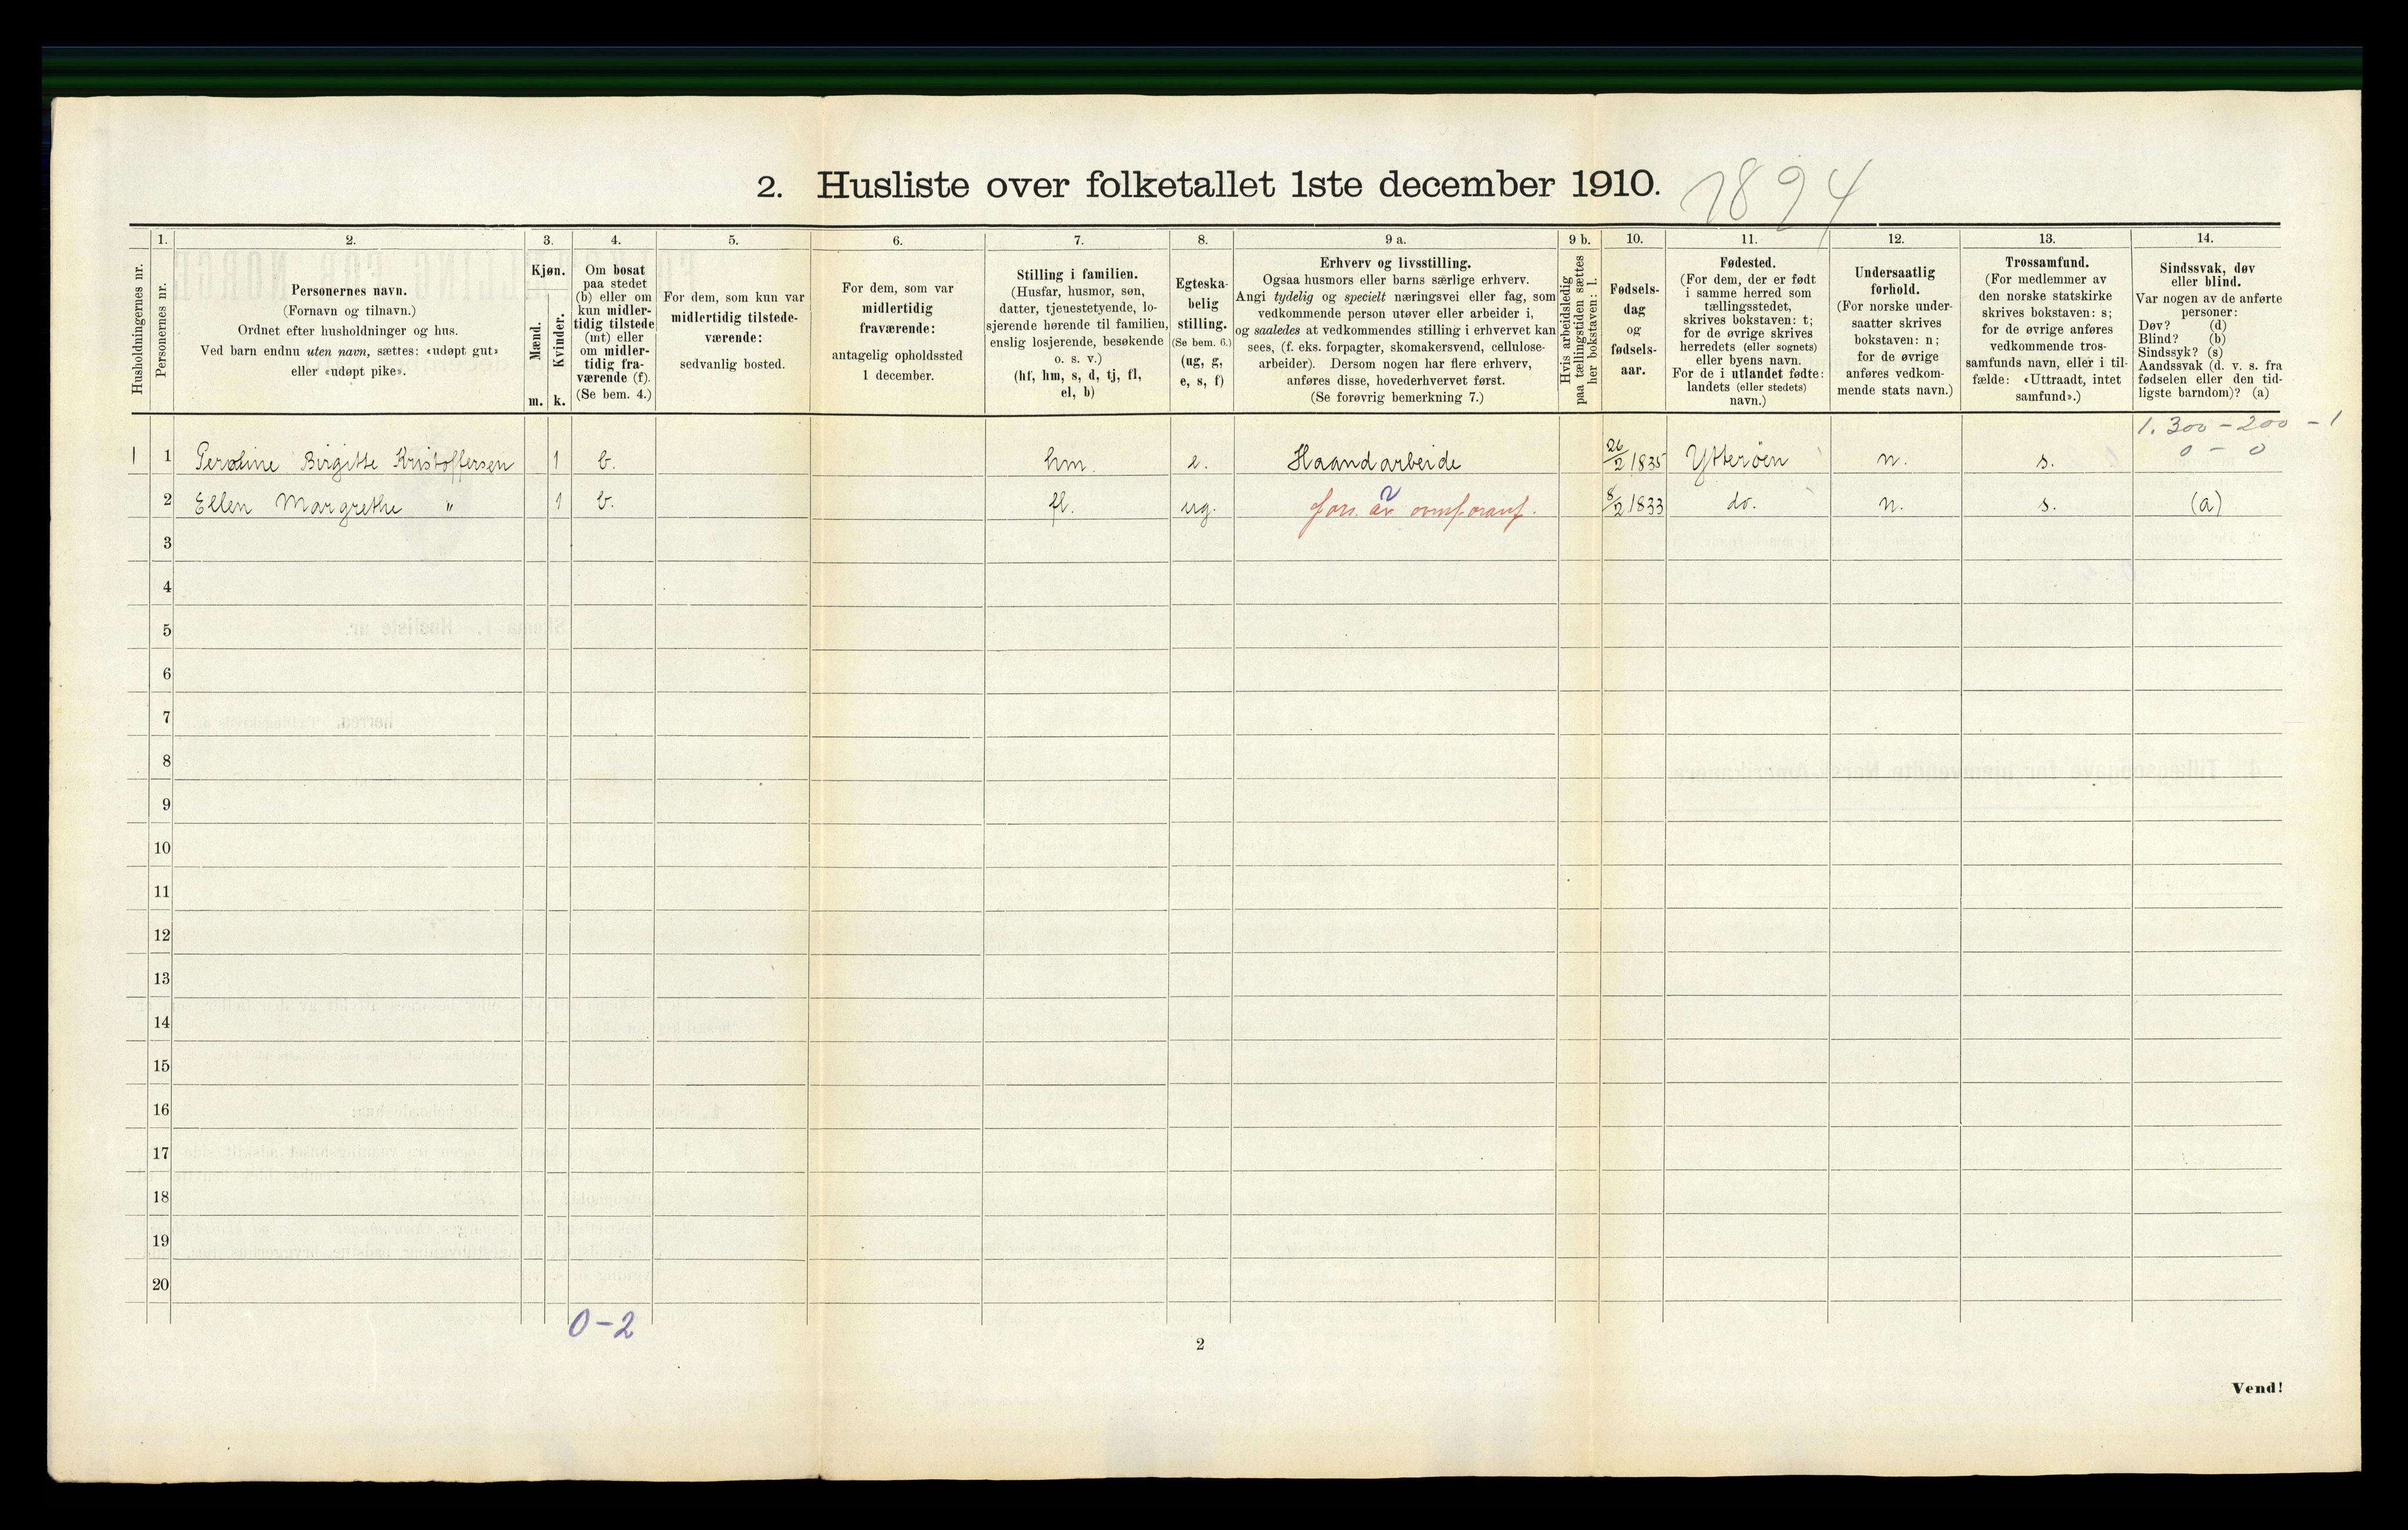 2. Husliste over folketallet 1ste december 1910. 1894
Husholdningernes nr.
1.
Personernes nr.
2.
Personernes navn.
(Fornavn og tilnavn.)
Ordnet efter husholdninger og hus.
Ved barn endnu uten navn, sættes: «udøpt gut»
eller «udøpt pike».
3.
Kjøn.
Mænd.
Kvinder.
m. k.
4.
Om bosat
paa stedet
(b) eller om
kun midler-
tidig tilstede
(mt) eller
om midler-
tidig fra-
værende (f).
(Se bem. 4.)
5.
For dem, som kun var
midlertidig tilstede-
værende:
sedvanlig bosted.
6.
For dem, som var
midlertidig
fraværende:
antagelig opholdssted
1 december.
7.
Stilling i familien.
(Husfar, husmor, søn,
datter, tjenestetyende, lo-
sjerende hørende til familien,
enslig losjerende, besøkende
o. s. v.)
(hf, hm, s, d, tj, fl,
el, b)
8.
Egteska-
belig
stilling.
(Se bem. 6.)
(ug, g,
e, s, f)
9 a.
Erhverv og livsstilling.
Ogsaa husmors eller barns særlige erhverv.
Angi tydelig og specielt næringsvei eller fag, som
vedkommende person utøver eller arbeider i,
og saaledes at vedkommendes stilling i erhvervet kan
sees, (f. eks. forpagter, skomakersvend, cellulose-
arbeider). Dersom nogen har flere erhverv,
anføres disse, hovederhvervet først.
(Se forøvrig bemerkning 7.)
9 b.
Hvis arbeidsledig
paa tællingstiden sættes
her bokstaven: l.
10.
Fødsels-
dag
og
fødsels-
aar.
11.
Fødested.
(For dem, der er født
i samme herred som
tællingsstedet,
skrives bokstaven: t;
for de øvrige skrives
herredets (eller sognets)
eller byens navn.
For de i utlandet fødte:
landets (eller stedets)
navn.)
12.
Undersaatlig
forhold.
(For norske under-
saatter skrives
bokstaven: n;
for de øvrige
anføres vedkom-
mende stats navn.)
13.
Trossamfund.
(For medlemmer av
den norske statskirke
skrives bokstaven: s;
for de øvrige anføres
vedkommende tros-
samfunds navn, eller i til-
fælde: «Uttraadt, intet
samfund».)
14.
Sindssvak, døv
eller blind.
Var nogen av de anførte
personer:
Døv? (d)
Blind? (b)
Sindssyk? (s)
Aandssvak (d. v. s. fra
fødselen eller den tid-
ligste barndom)? (a)
1. 300 - 200 - 1
0 - 0
1 1 Peroline Birgitte Kristoffersen 1 b. hm. e. Haandarbeide 26/2 1835 Ytterøen n. s.
2 Ellen Margrethe " 1 b. fl. ug. fors. av 8/2 1833 do. n. s. (a)
3
4
5
6
7
8
9
10
11
12
13
14
15
16
17
18
19
20
0-2
2
Vend!